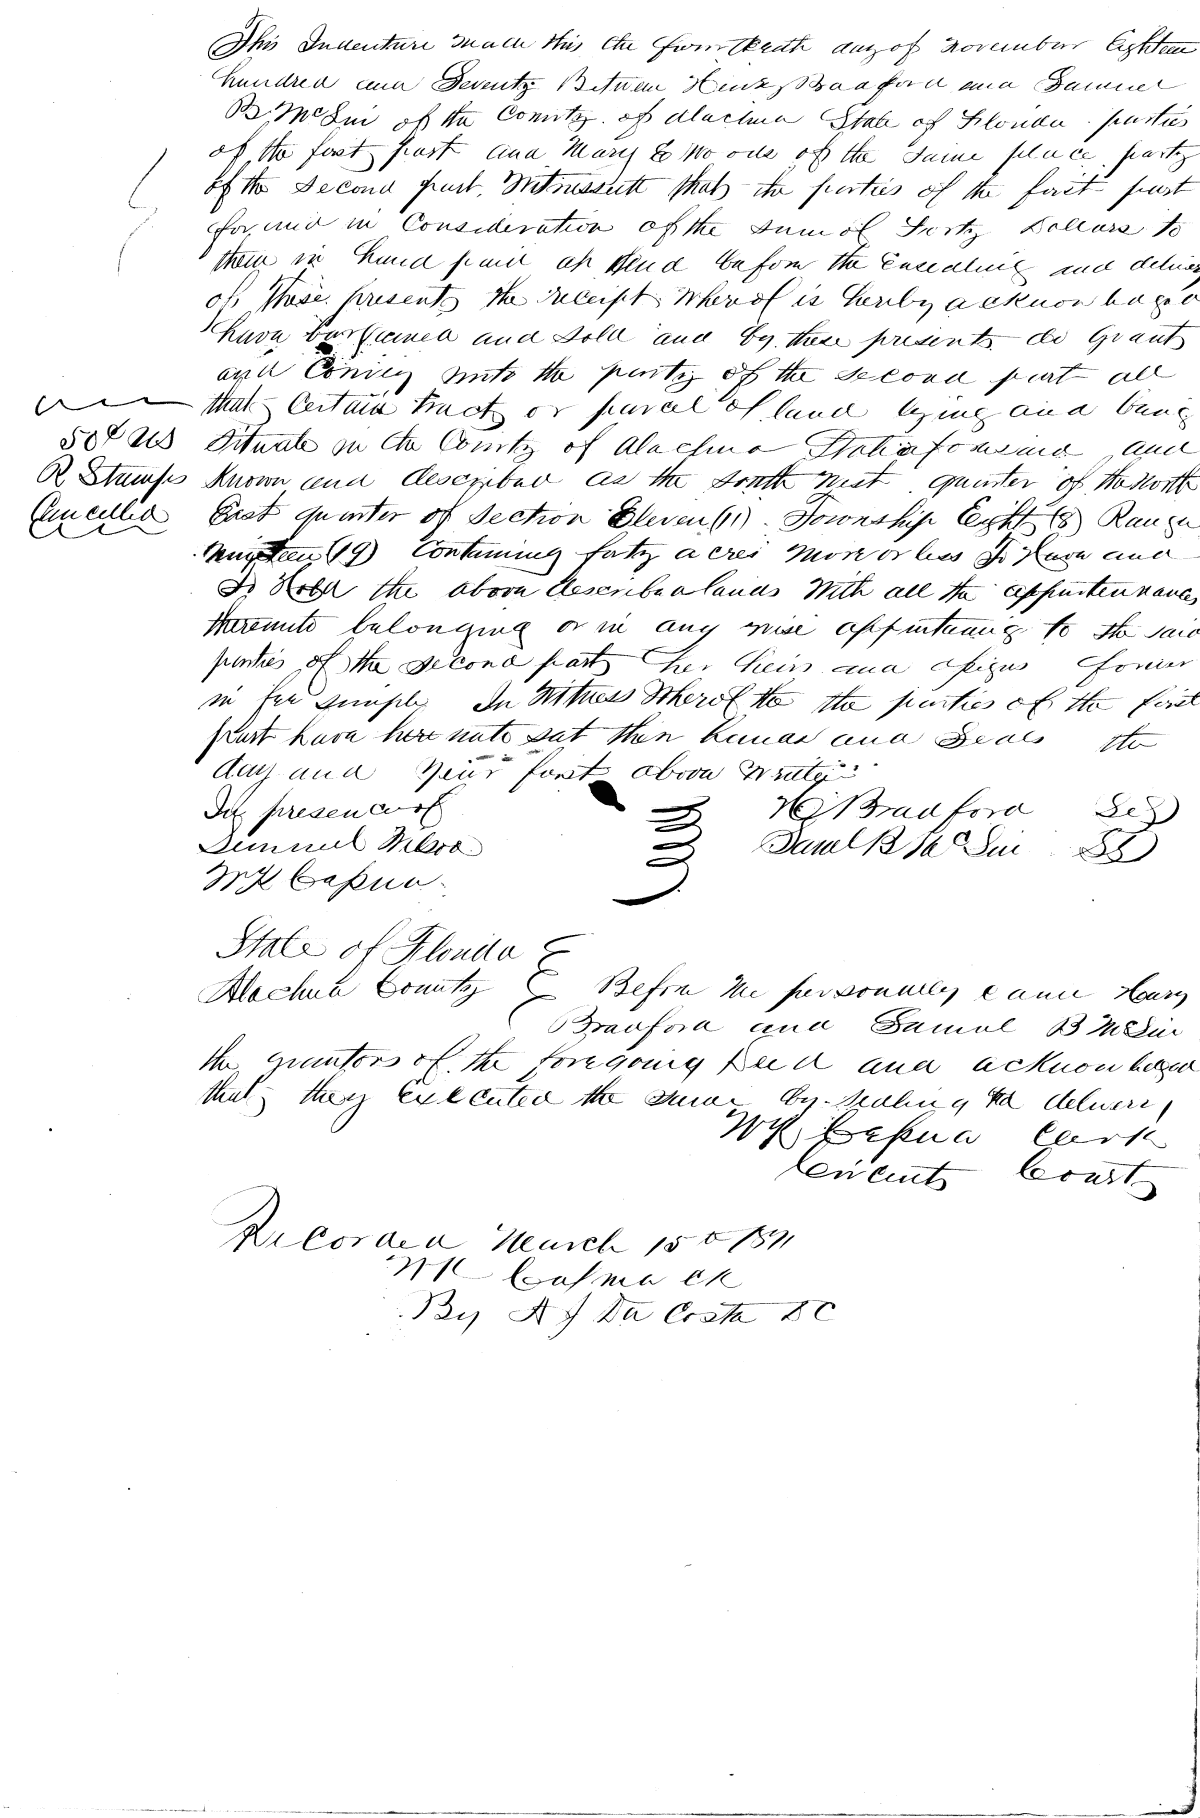 This Indenture made this the fourteenth day of November Eighteen
hundred and Seventy Between Henry Bradford and Samuel
B. McLin of the County of Alachua State of Florida parties
of the first part and Mary E Woods of the same place party
of the Second part. Witnesseth that the parties of the first part
for and in Consideration of the sum of Forty Dollars to
them in hand paid at and before the Ensealing and delivery
of these presents the receipt Whereof is hereby acknowledged
have bargained and sold and by these presents do Grant
and Convey unto the party of the second part all
that Certain tract or parcel of land lying and being
50¢ US
R Stamps
Cancelled
Situate in the County of Alachua State aforesaid and
Known and described as the South West quarter of the North
East quarter of Section Eleven (11) Township Eight (8) Range
Nineteen (19) Containing forty acres more or less To Have and
To Hold the above described lands With all the appurtenances
thereunto belonging or in any wise appertaining to the said
parties of the second part her heirs and assigns forever
in fee simple In Witness Whereof the the parties of the first
part have here unto set their hands and Seals the
day and year first above Written
In presence of
H Bradford
Samuel Wilson
Saml B McLin
State of Florida
Alachua County Before me personally came Henry
Bradford and Samuel B McLin
the grantors of the foregoing Deed and acknowledged
that they Executed the same by sealing and delivery
Clerk
Circuit Court
Recorded March 15 1871
By A J Da Costa DC